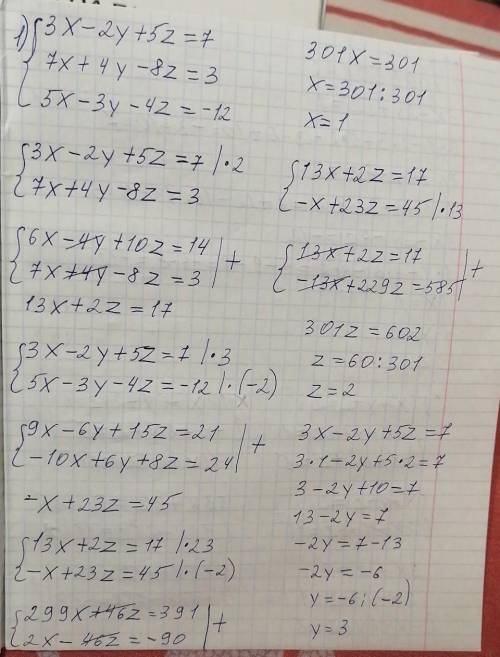 1) {3x-2y+5z=7
7x+4y-8z=3
5x-3y-4z=-12
{3x-2y+5z=7 |·2
7x+4y-8z=3
{6x-4y+10z=14 | +
7x+4y-8z=3
13x+2z=17
{3x-2y+5z=7 |·3
5x-3y-4z=-12 |·(-2)
{9x-6y+15z=21 | +
-10x+6y+8z=24
-x+23z=45
{13x+2z=17 |·23
-x+23z=45 |·(-2)
{299x+46z=391 | +
2x-46z=-90
301x=301
x=301:301
x=1
{13x+2z=17
-x+23z=45 |·13
{13x+2z=17 | +
-13x+229z=585
301z=602
z=60:301
z=2
3x-2y+5z=7
3·1-2y+5·2=7
3-2y+10=7
13-2y=7
-2y=7-13
-2y=-6
y=-6:(-2)
y=3